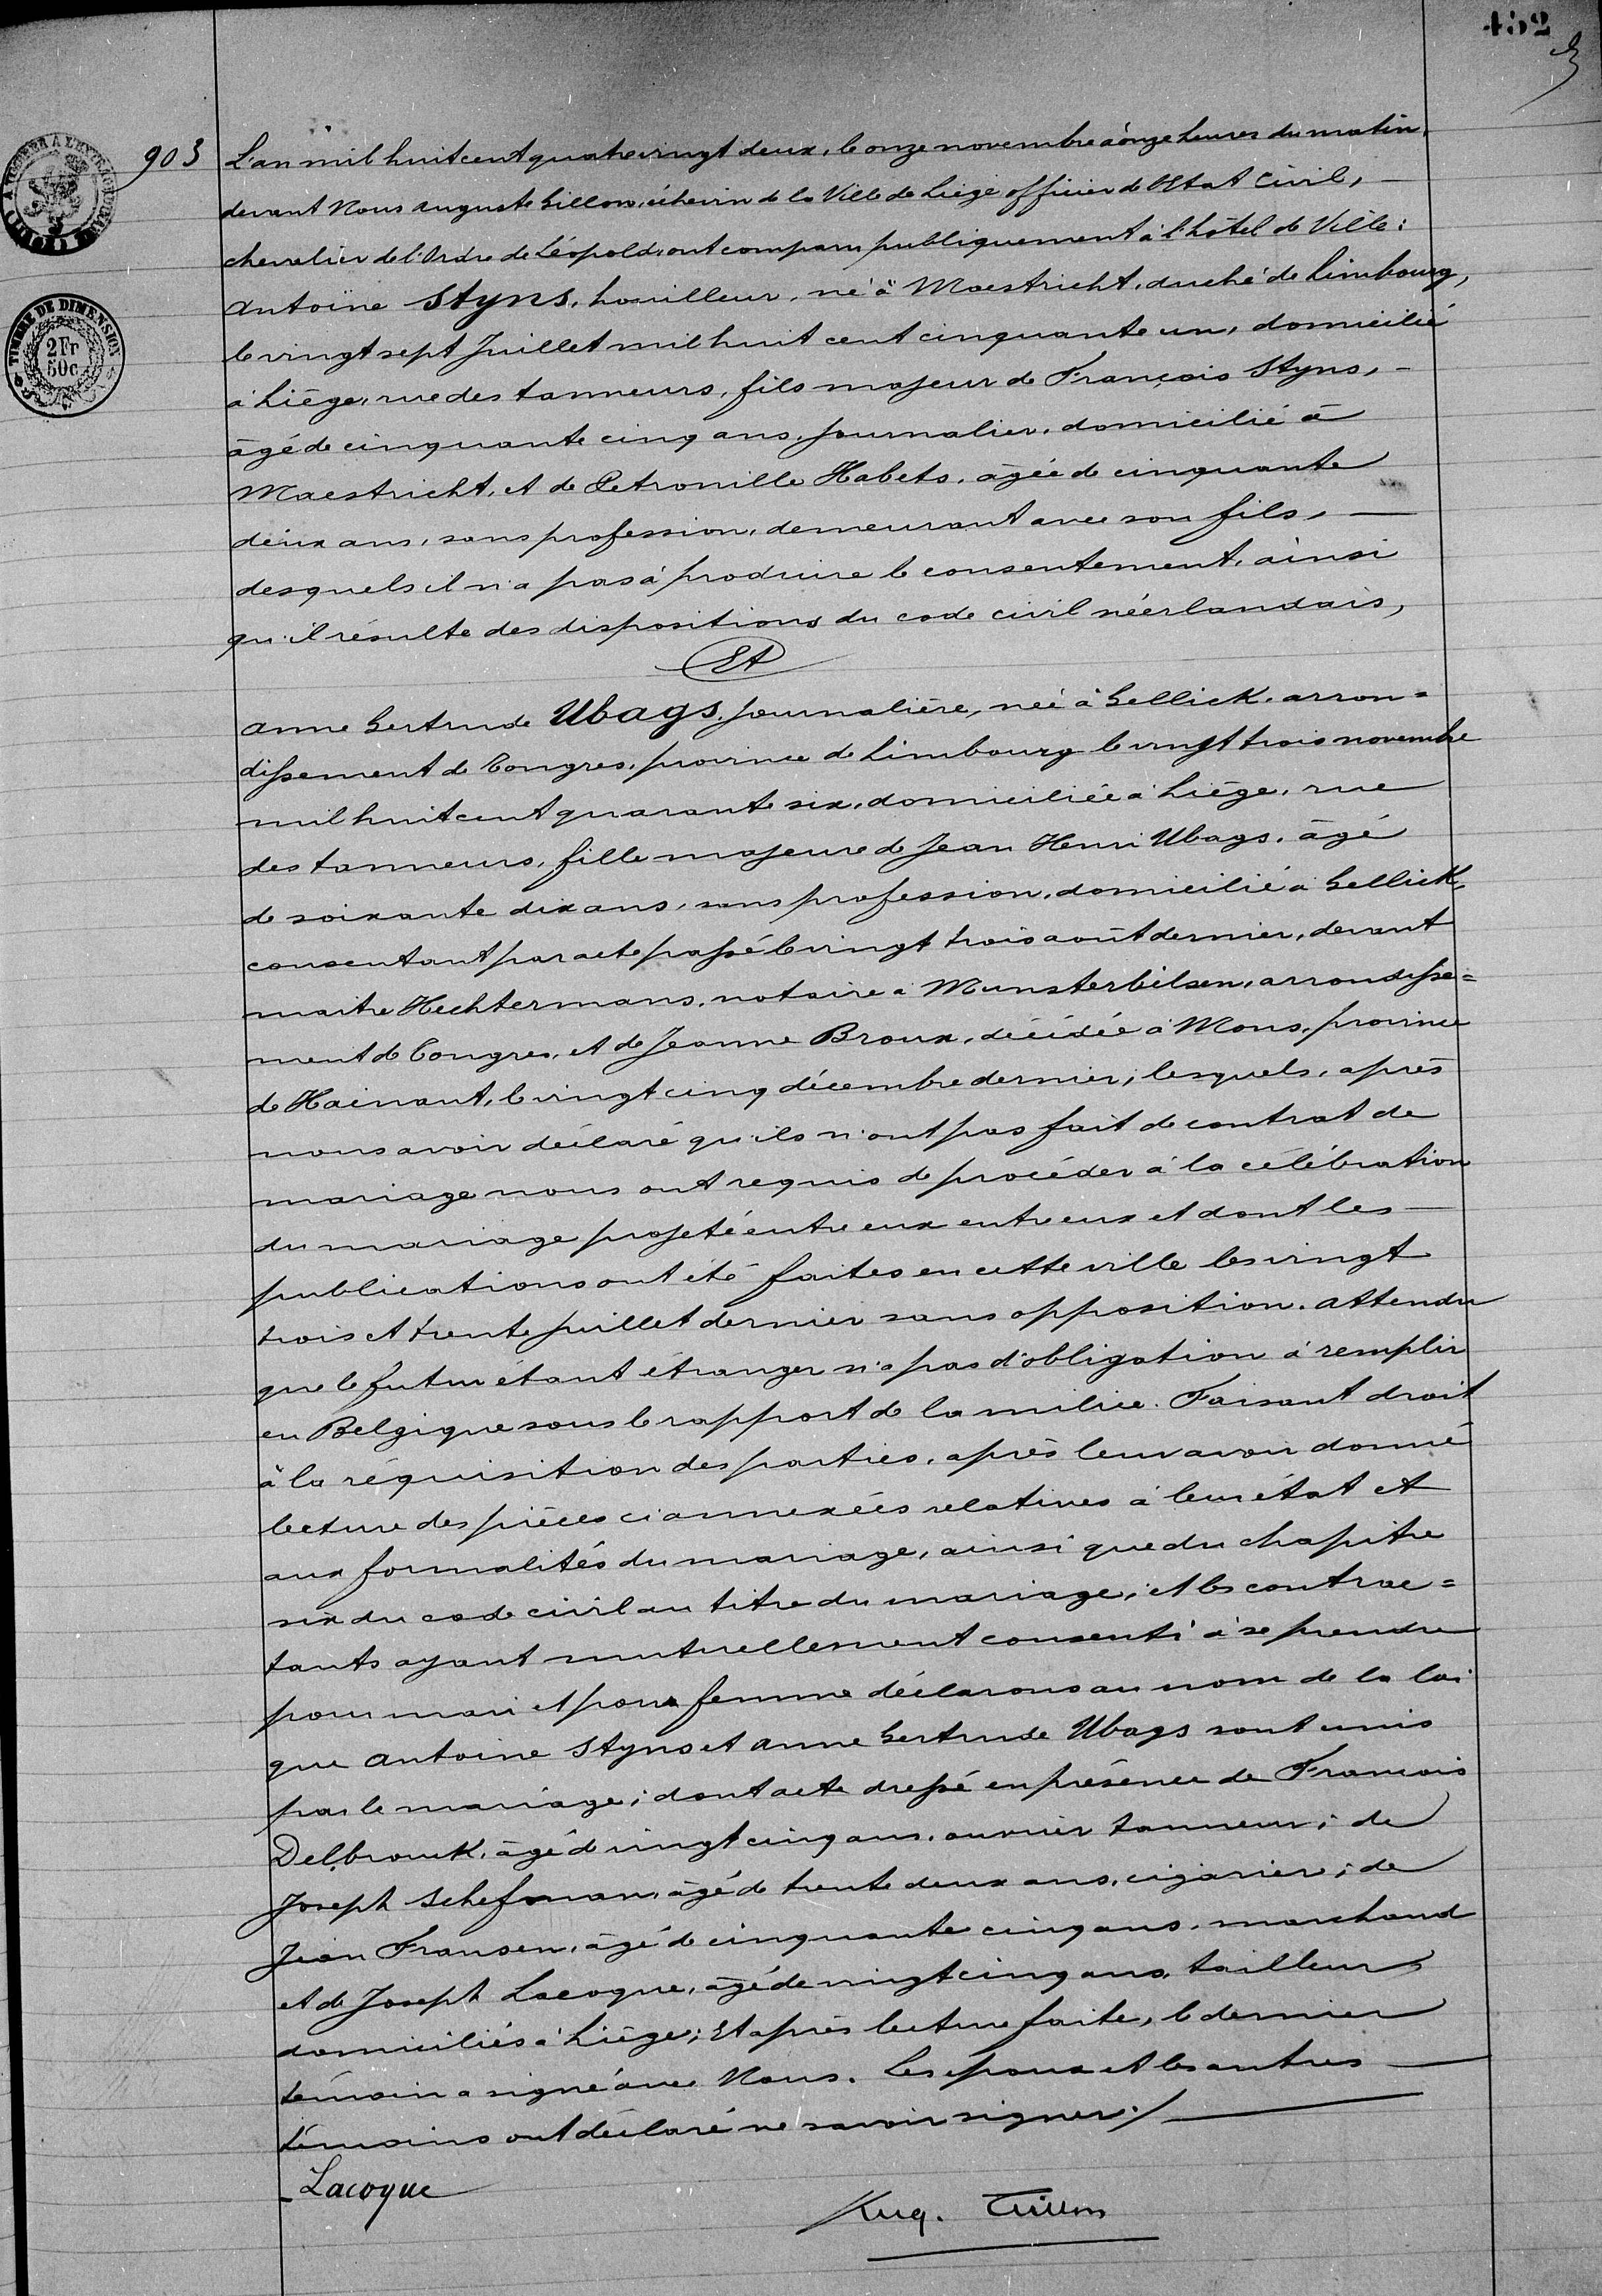 452
903 L'an mil huit cent quatrevingt deux, le onze novembre à onze heures du matin,
devant Nous Auguste Gillon, échevin de la Ville de Liège officier de l'Etat Civil, —
chevalier de l'Ordre de Léopold, ont comparu publiquement à l'hôtel de Ville:
Antoine Styns, houilleur, né à Maestricht, duché de Limbourg,
le vingt sept Juillet mil huit cent cinquante un, domicilié
à Liège, rue des tanneurs, fils majeur de François Styns, —
âgé de cinquante cinq ans, journalier, domicilié à
Maestricht, et de Petronille Habets, âgée de cinquante
deux ans, sans profession, demeurant avec son fils, —
desquels il n'a pas à produire le consentement, ainsi
qu'il résulte des dispositions du code civil néerlandais,
Et
Anne Gertrude Ubags, journalière, née à Gellick, arron=
dissement de Tongres, province de Limbourg le vingt trois novembre
mil huit cent quarante six, domiciliée à Liège, rue
des tanneurs, fille majeure de Jean Henri Ubags, âgé
de soixante dix ans, sans profession, domicilié à Gellick,
consentant par acte passé le vingt trois août dernier, devant
maître Hechtermans, notaire à Munsterbilsen, arrondisse=
ment de Tongres, et de Jeanne Broux, décédée à Mons, province
de Hainaut, le vingt cinq décembre dernier; lesquels, après
nous avoir déclaré qu'ils n'ont pas fait de contrat de
mariage nous ont requis de procéder à la célébration
du mariage projeté entre eux entre eux et dont les —
publications ont été faites en cette ville les vingt
trois et trente juillet dernier sans opposition. Attendu
que le futur étant étranger n'a pas d'obligation à remplir
en Belgique sous le rapport de la milice. Faisant droit
à la réquisition des parties, après leur avoir donné
lecture des pièces ci annexées relatives à leur état et
aux formalités du mariage, ainsi que du chapitre
six du code civil au titre du mariage; et les contrac=
tants ayant mutuellement consenti à se prendre
pour mari et pour femme déclarons au nom de la loi
que Antoine Styns et Anne Gertrude Ubags sont unis
par le mariage; dont acte dressé en présence de François
Delbrouck, âgé de vingt cinq ans, ouvrier tanneur; de
Joseph Schefman, âgé de trente deux ans, cigarier; de
Jean Fransen, âgé de cinquante cinq ans, marchand
et de Joseph Lacoque, âgé de vingt cinq ans, tailleur,
domiciliés à Liège; Et après lecture faite, le dernier
témoin a signé avec Nous. Les époux et les autres —
témoins ont déclaré ne savoir signer./ —
Lacoque
Aug. Gillon
TIMBRE DE DIMENSION
2Fr
50c